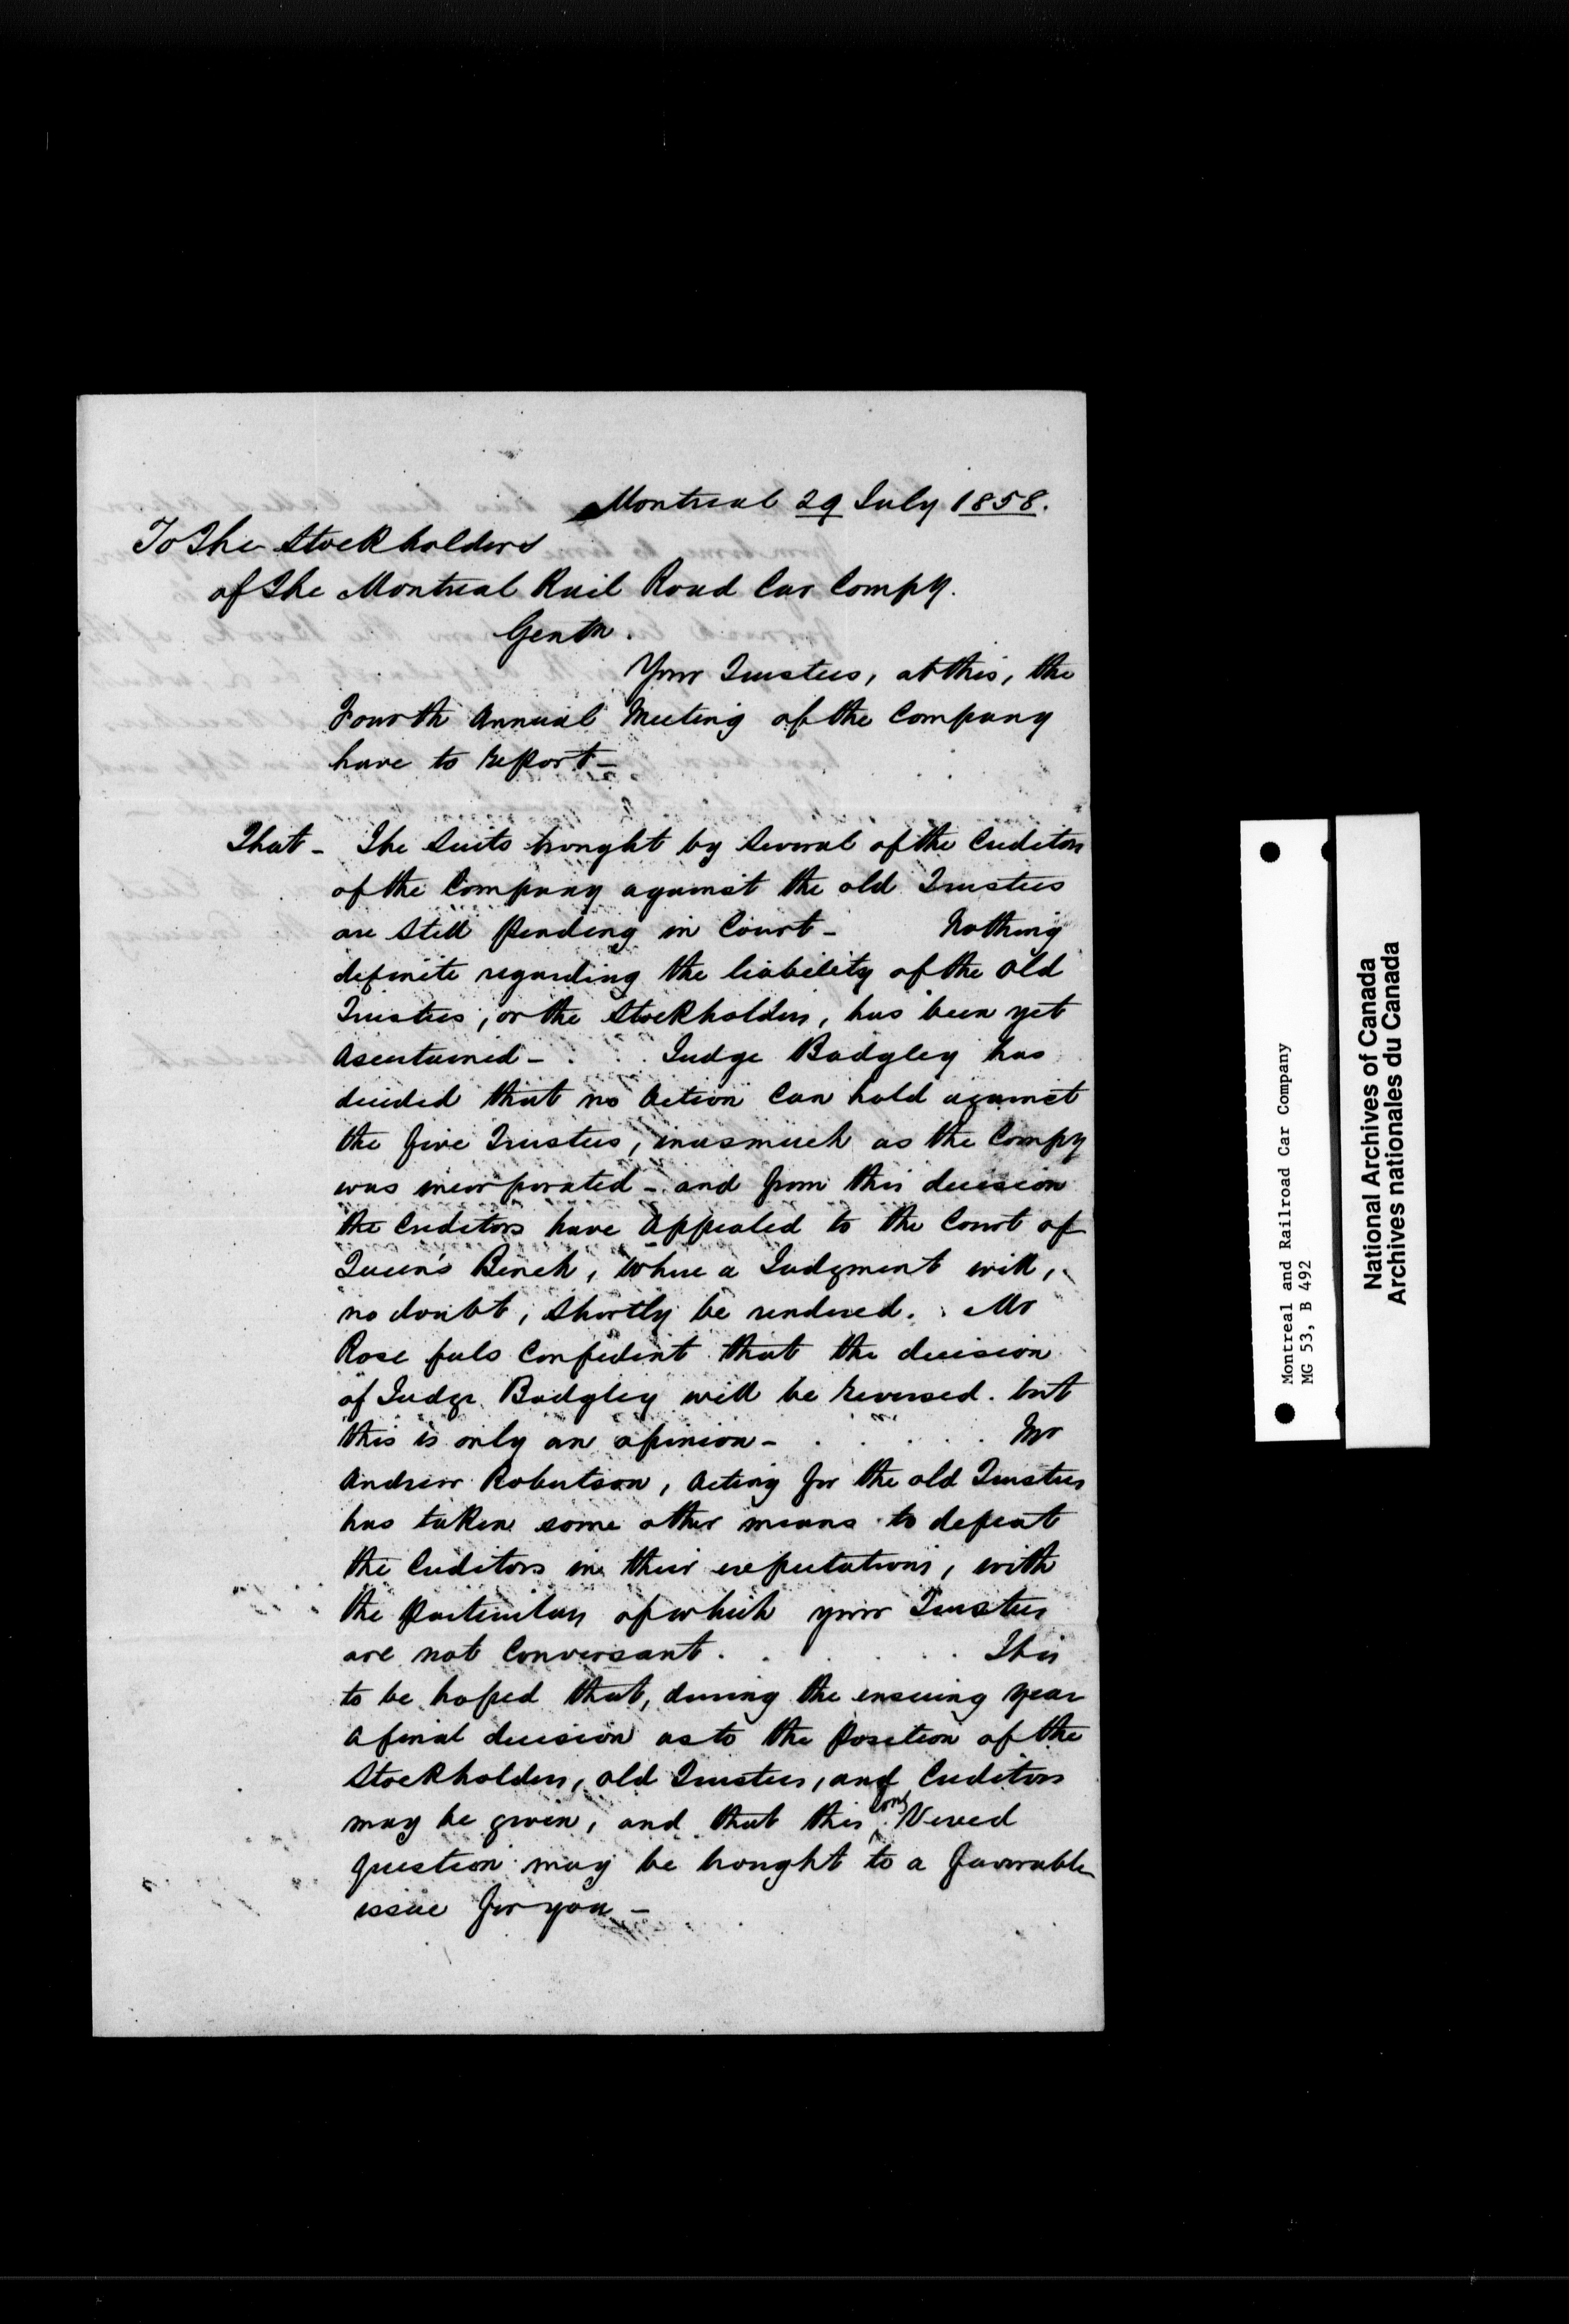 Montreal 29 July 1858.
To The Stockholders
of The Montreal Rail Road Car Compy.
Gentn.
Your Trustees, at this, the
Fourth Annual Meeting of the Company
have to report -
That - The Suits brought by Several of the Creditors
of the Company against the old Trustees
are Still Pending in Court - Nothing
definite regarding the liability of the old
Trustees, or the Stockholders, has been yet
Ascertained - Judge Badgley has
decided that no Action Can hold against
the five Trustees, inasmuch as the Compy
was incorporated - and from this decision
the Creditors have Appealed to the Court of
Queen's Bench, Where a Judgment will,
no doubt, Shortly be rendered. Mr
Rose feels Confident that the decision
of Judge Badgley will be reversed. but
this is only an opinion - Mr
Andrew Robertson, Acting for the old Trustees
has taken some other means to defeat
the Creditors in their expectations, with
the Particulars of which your Trustees
are not Conversant. This
to be hoped that, during the ensuing year
a final decision as to the Position of the
Stockholders, old Trustees, and Creditors
may be given, and that this long Vexed
question may be brought to a favorable
issue for you -
Montreal and Railroad Car Company
MG 53, B 492
National Archives of Canada
Archives nationales du Canada